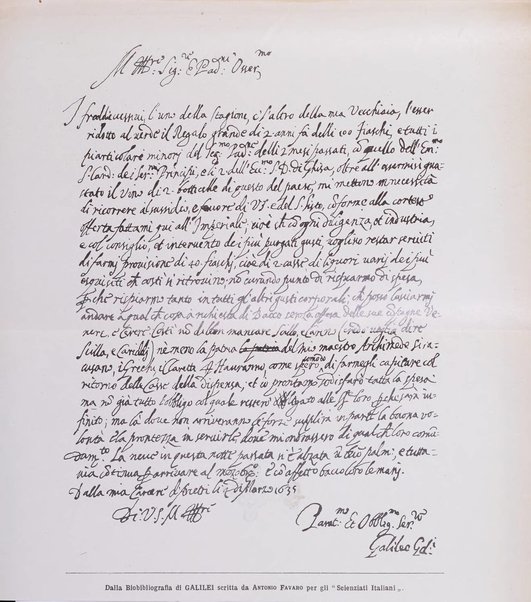 M. Ill.re Sig.re e Pad.ne Osser.mo
I freddi eccessivi, l'uno della stagione, e l'altro della mia Vecchiaia, l'esser
ridotto al verde il Regalo grande di 2 anni fà delli 100 fiaschi, e tutti i
particolari minori del Ser.mo Pad.ne delli 2 mesi passati, quello dell'Em.
S. Card. de i Ser.mi Principi, e i 2 dell'Ecc.mo S. D. di Ghisa, oltre all'essermisi gua
stato il vino di 2 botticelle di questo del paese, mi mettono in necessità
di ricorrere al sussidio, e favore di V.S. e del S. Sisto, conforme alla cortese
offerta fattami qui all'Imperiale; cioè che con ogni diligenza, et industria,
e col consiglio, et intervento de i più purgati gusti, voglino restar serviti
di farmi provisione di 40 fiaschi, cioè di 2 casse di liquori varii de i più
esquisiti che costì si ritrovino, no curando punto di risparmo di spesa,
perchè risparmo tanto in tutti gl'altri gusti corporali, che posso lasciarmi
andare a qualche cosa a richiesta di Bacco senza offesa delle sue compagne Ve-
nere, e Cerere. Costì no debbon mancare Scillo, e Carino (onde voglio dire
Scilla, e Cariddi) nè meno la patria la patria del mio maestro Archimede Sira-
cusano, i Grechi, i Claretti &. Hauranno, come spero, comodo di farmegli capitare col
ritorno delle Casse della dispensa; et io prontam.te sodisfarò tutta la spesa
ma no già tutto l'obbligo col quale resterò legato alle SS. loro perche sarà in-
finito; ma là dove non arriveranno le forze supplirà in parte la buona vo-
lontà e la prontezza in servirle, dove mi onorassero di qualche loro coman-
dam.to La neve in questa notte passata si è alzata palmi; e tutta-
via continua e con affetto bacio loro le mani.
Dalla mia Carcere d'Arcetri li 4 di Marzo 1635
Di V.S. M. Ill.re
Parat.mo et Obblig.mo Ser.re
Galileo Gal.i
Dalla Biobibliografia di GALILEI scritta da ANTONIO FAVARO per gli "Scienziati Italiani„.